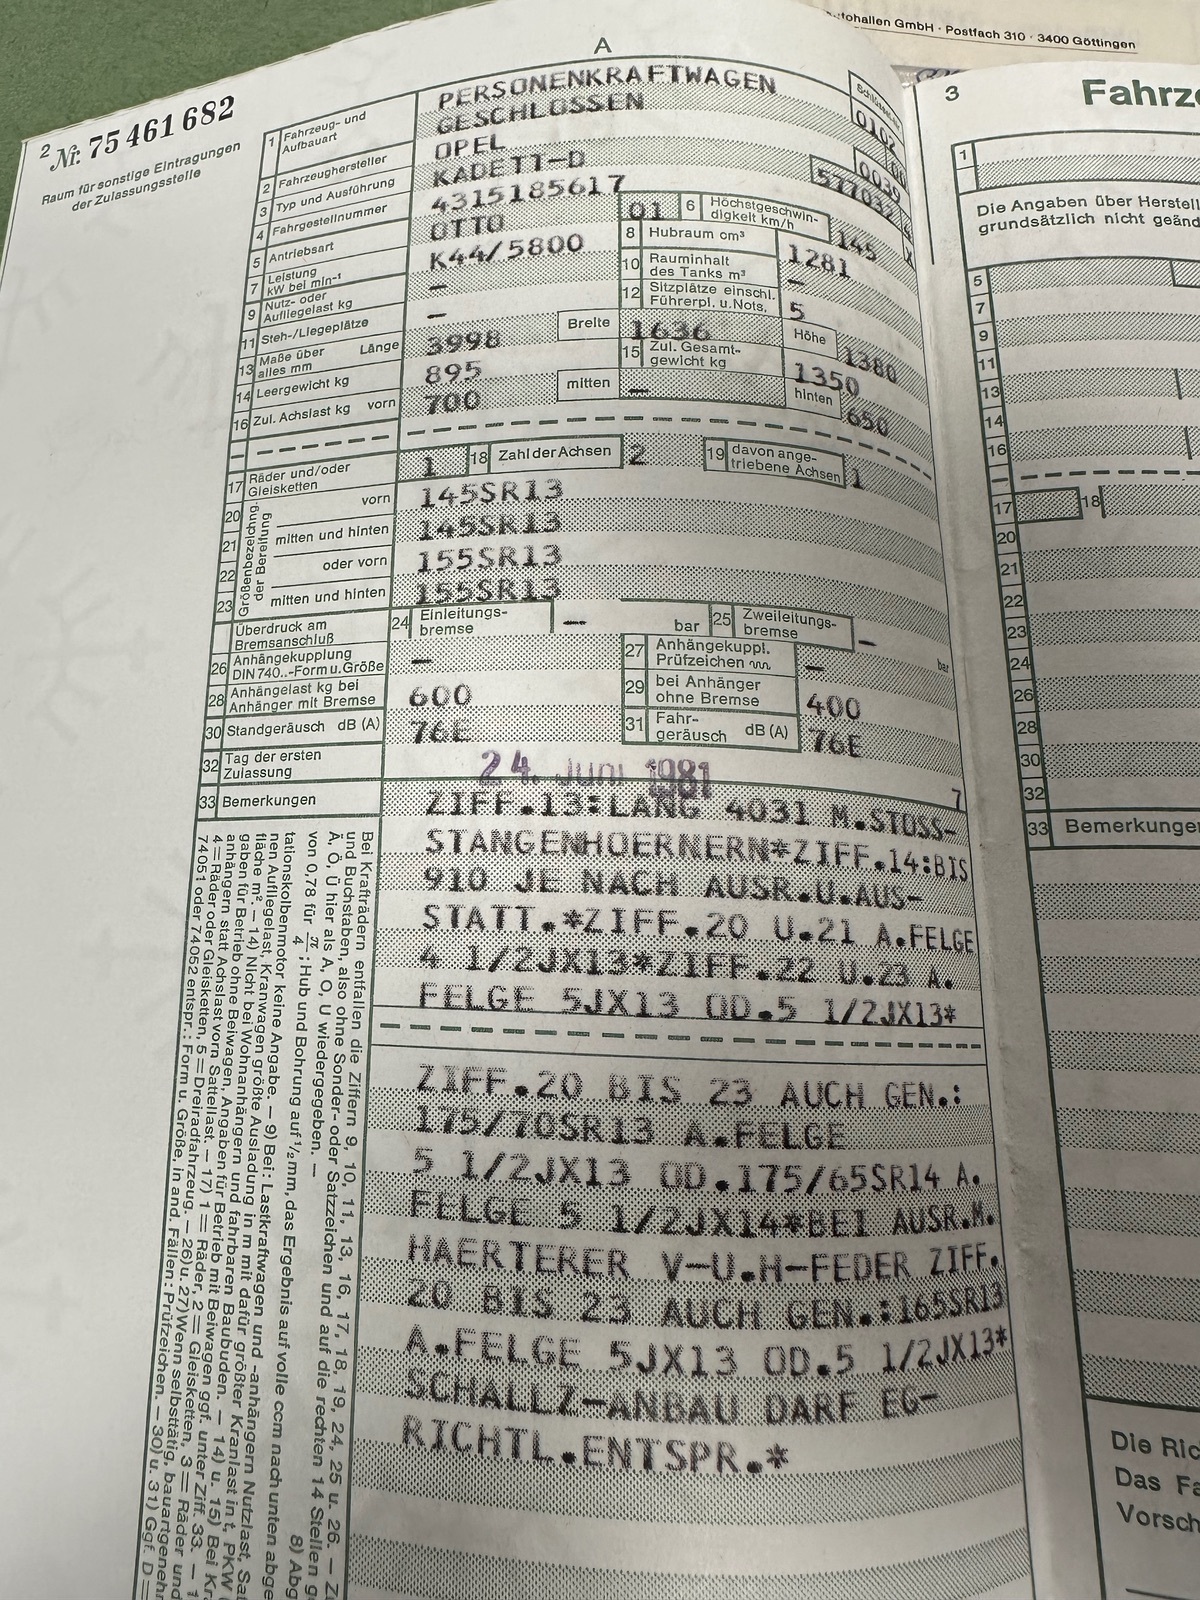 utohallen GmbH · Postfach 310 · 3400 Göttingen
A
2 Nr. 75461682
Raum für sonstige Eintragungen
der Zulassungsstelle
1 Fahrzeug- und Aufbauart PERSONENKRAFTWAGEN
GESCHLOSSEN 0102
2 Fahrzeughersteller OPEL 0039
3 Typ und Ausführung KADETT-D 577032
4 Fahrgestellnummer 4315185617
5 Antriebsart OTTO 01 6 Höchstgeschwin-digkeit km/h 145
7 Leistung kW bei min-1 K44/5800 8 Hubraum cm³ 1281
9 Nutz- oder Aufliegelast kg – 10 Rauminhalt des Tanks m³ –
11 Steh-/Liegeplätze – 12 Sitzplätze einschl. Führerpl. u. Nots. 5
13 Maße über alles mm Länge 3998 Breite 1636 Höhe 1380
14 Leergewicht kg 895 15 Zul. Gesamt-gewicht kg 1350
16 Zul. Achslast kg vorn 700 mitten – hinten 650
17 Räder und/oder Gleisketten 1 18 Zahl der Achsen 2 19 davon ange-triebene Achsen 1
Größenbezeichng. der Bereifung
20 vorn 145SR13
21 mitten und hinten 145SR13
22 oder vorn 155SR13
23 mitten und hinten 155SR13
Überdruck am Bremsanschluß 24 Einleitungs-bremse – bar 25 Zweileitungs-bremse – bar
26 Anhängekupplung DIN 740..-Form u. Größe – 27 Anhängekuppl. Prüfzeichen –
28 Anhängelast kg bei Anhänger mit Bremse 600 29 bei Anhänger ohne Bremse 400
30 Standgeräusch dB (A) 76E 31 Fahr-geräusch dB (A) 76E
32 Tag der ersten Zulassung 24. Juni 1981
33 Bemerkungen 7
ZIFF.13:LANG 4031 M.STOSS-
STANGENHOERNERN*ZIFF.14:BIS
910 JE NACH AUSR.U.AUS-
STATT.*ZIFF.20 U.21 A.FELGE
4 1/2JX13*ZIFF.22 U.23 A.
FELGE 5JX13 OD.5 1/2JX13*
ZIFF.20 BIS 23 AUCH GEN.:
175/70SR13 A.FELGE
5 1/2JX13 OD.175/65SR14 A.
FELGE 5 1/2JX14*BEI AUSR.M.
HAERTERER V-U.H-FEDER ZIFF.
20 BIS 23 AUCH GEN.:165SR13
A.FELGE 5JX13 OD.5 1/2JX13*
SCHALLZ-ANBAU DARF EG-
RICHTL.ENTSPR.*
Bei Krafträdern entfallen die Ziffern 9, 10, 11, 13, 16, 17, 18, 19, 24, 25 u. 26. —
und Buchstaben, also ohne Sonder- oder Satzzeichen und auf die rechten 14 Stellen
Ä, Ö, Ü hier als A, O, U wiedergegeben. —
von 0,78 für π/4; Hub und Bohrung auf 1/2 mm, das Ergebnis auf volle ccm nach unten 8)
tationskolbenmotor keine Angabe. — 9) Bei: Lastkraftwagen und -anhängern Nutzlast,
nen Aufliegelast, Kranwagen größte Ausladung in m mit dafür größter Kranlast in t, PKW
fläche m². — 14) Nicht bei Wohnanhängern und fahrbaren Baubuden. — 14) u. 15) Bei
gaben für Betrieb ohne Beiwagen, Angaben für Betrieb mit Beiwagen ggf. unter Ziff. 33. —
anhängern statt Achslast vorn Sattellast. — 17) 1 = Räder, 2 = Gleisketten, 3 = Räder und
4 = Räder oder Gleisketten, 5 = Dreiradfahrzeug. — 26) u. 27) Wenn selbsttätig,
74051 oder 74052 entspr.: Form u. Größe, in and. Fällen: Prüfzeichen. — 30) u. 31) Ggf. D =
3 Fahrz
1
Die Angaben über Herstell
grundsätzlich nicht geänd
5
7
9
11
13
14
16
17 18
20
21
22
23
24
26
28
30
32
33 Bemerkunge
Die Ric
Das Fa
Vorsch